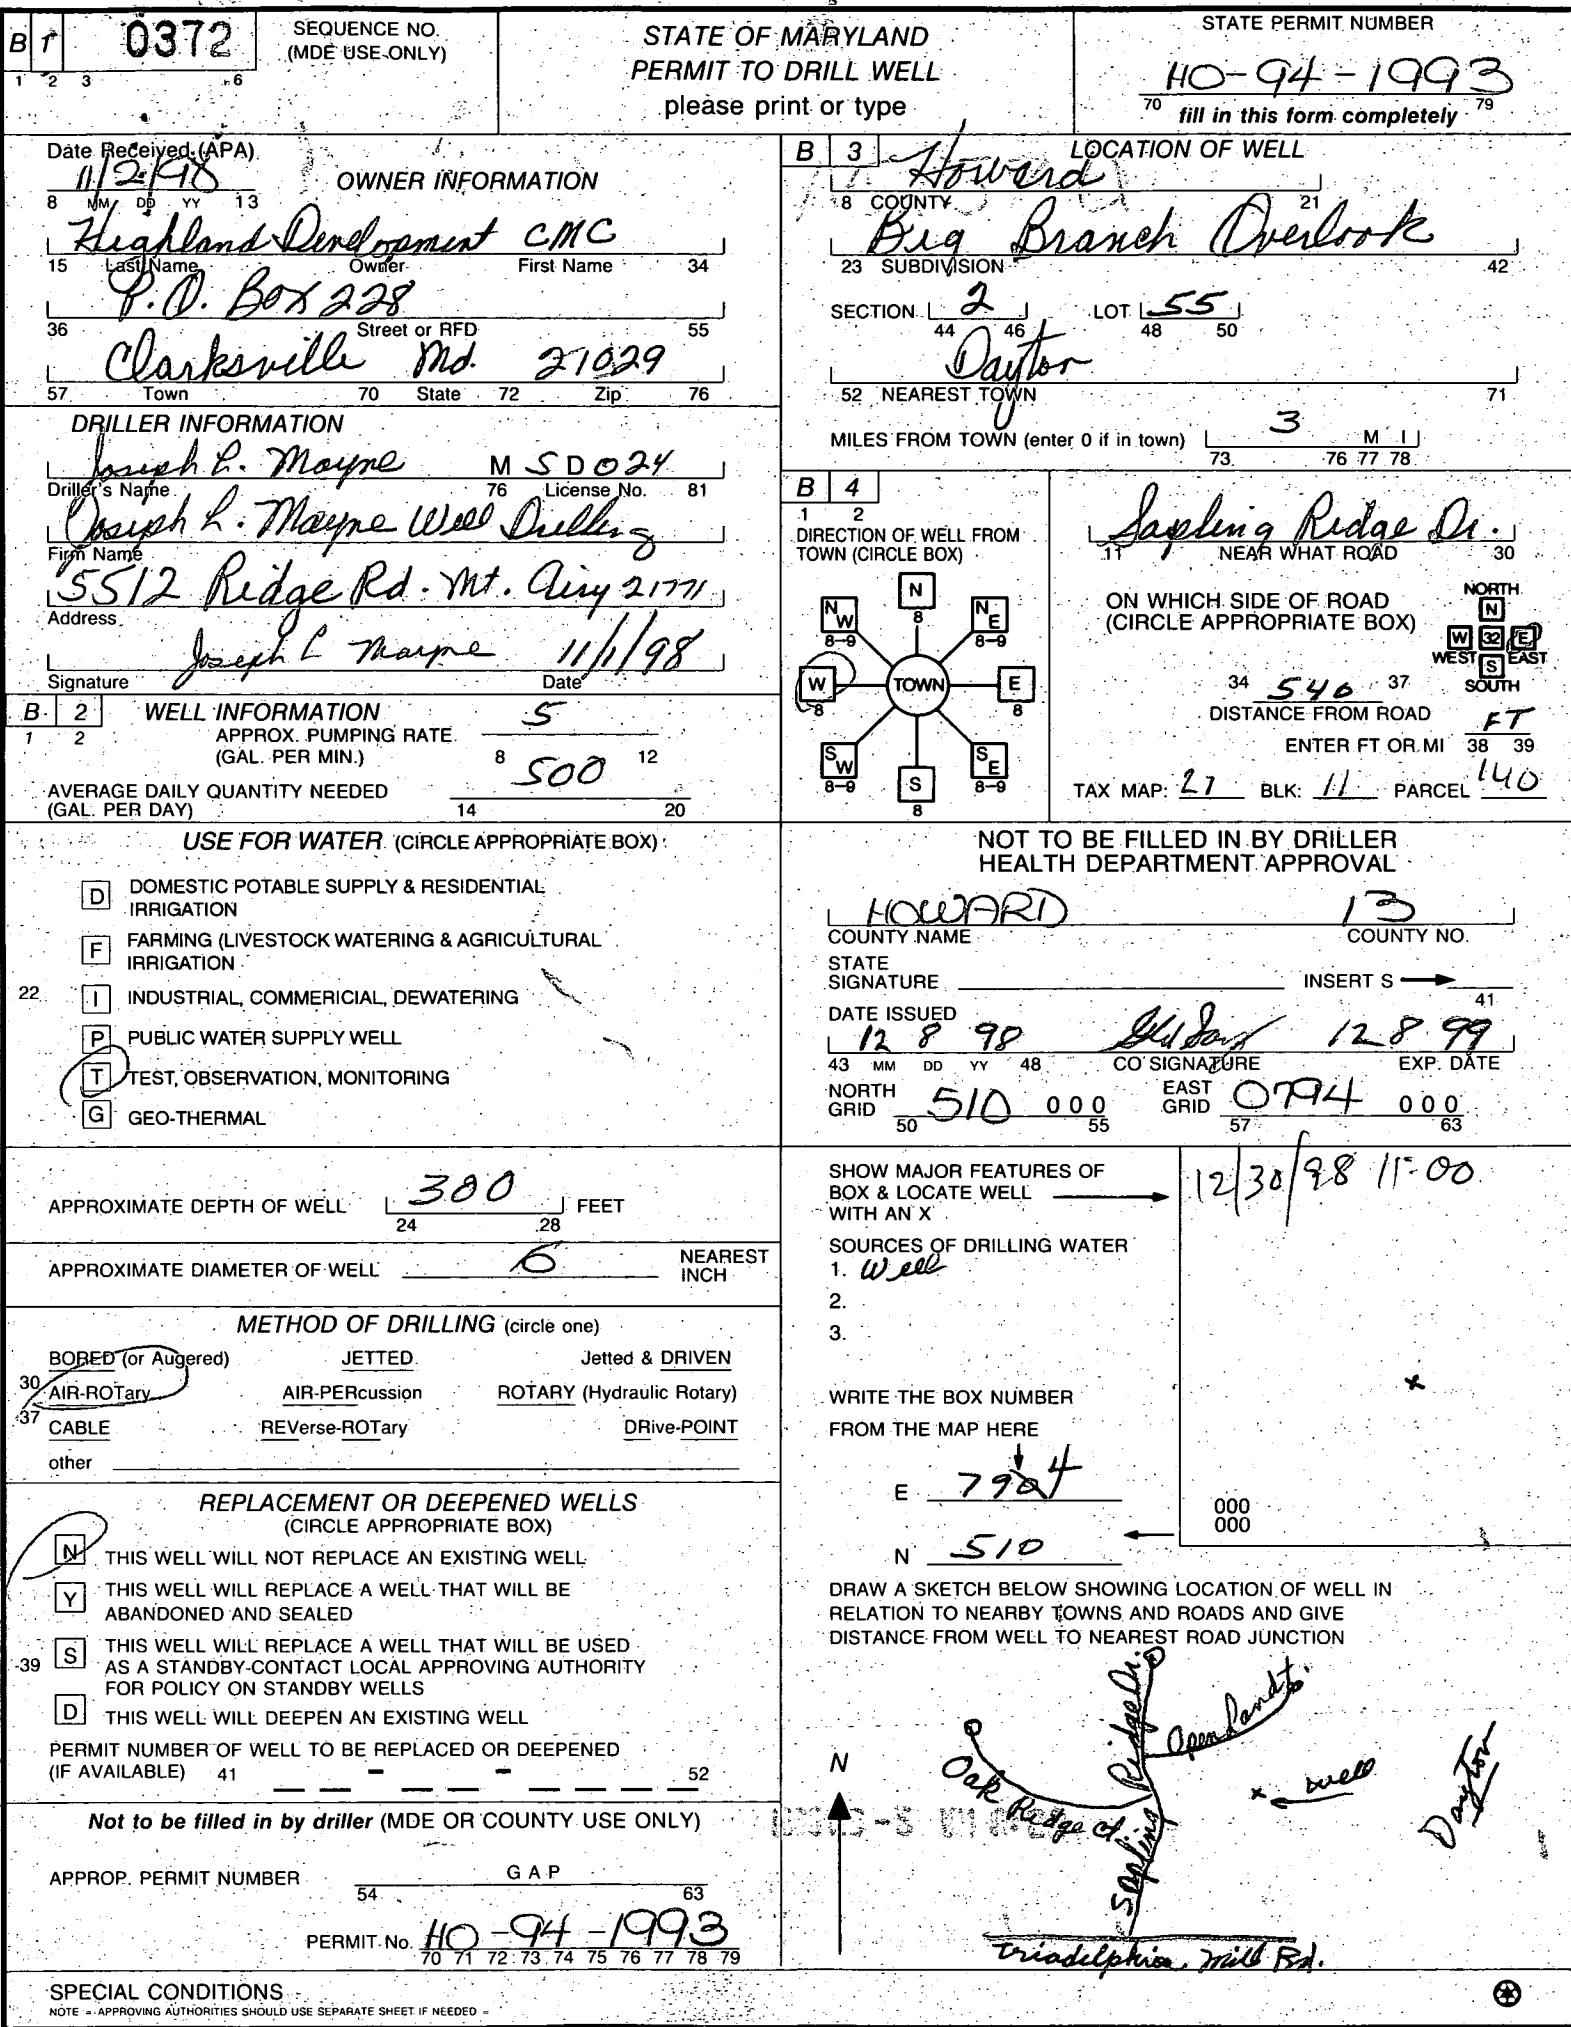 B 1 0372 SEQUENCE NO. (MDE USE ONLY)
1 2 3 6
STATE OF MARYLAND
PERMIT TO DRILL WELL
please print or type
STATE PERMIT NUMBER
HO-94-1993
70 fill in this form completely 79
Date Received (APA)
11/2/98
8 MM DD YY 13
OWNER INFORMATION
Highland Development CMC
15 Last Name Owner First Name 34
P.O. Box 228
36 Street or RFD 55
Clarksville Md. 21029
57 Town 70 State 72 Zip 76
DRILLER INFORMATION
Joseph L. Mayne M S D 0 2 4
Driller's Name 76 License No. 81
Joseph L. Mayne Well Drilling
Firm Name
5512 Ridge Rd. Mt. Airy 21771
Address
Joseph L Mayne 11/1/98
Signature Date
B 2 WELL INFORMATION
1 2
APPROX. PUMPING RATE 5
(GAL. PER MIN.) 8 12
AVERAGE DAILY QUANTITY NEEDED 500
(GAL. PER DAY) 14 20
USE FOR WATER (CIRCLE APPROPRIATE BOX)
D DOMESTIC POTABLE SUPPLY & RESIDENTIAL
IRRIGATION
F FARMING (LIVESTOCK WATERING & AGRICULTURAL
IRRIGATION
22 I INDUSTRIAL, COMMERICIAL, DEWATERING
P PUBLIC WATER SUPPLY WELL
T TEST, OBSERVATION, MONITORING
G GEO-THERMAL
APPROXIMATE DEPTH OF WELL 300 FEET
24 28
APPROXIMATE DIAMETER OF WELL 6 NEAREST
INCH
METHOD OF DRILLING (circle one)
BORED (or Augered) JETTED Jetted & DRIVEN
30 AIR-ROTary AIR-PERcussion ROTARY (Hydraulic Rotary)
37 CABLE REVerse-ROTary DRive-POINT
other
REPLACEMENT OR DEEPENED WELLS
(CIRCLE APPROPRIATE BOX)
N THIS WELL WILL NOT REPLACE AN EXISTING WELL
Y THIS WELL WILL REPLACE A WELL THAT WILL BE
ABANDONED AND SEALED
39 S THIS WELL WILL REPLACE A WELL THAT WILL BE USED
AS A STANDBY-CONTACT LOCAL APPROVING AUTHORITY
FOR POLICY ON STANDBY WELLS
D THIS WELL WILL DEEPEN AN EXISTING WELL
PERMIT NUMBER OF WELL TO BE REPLACED OR DEEPENED
(IF AVAILABLE) 41 - - 52
Not to be filled in by driller (MDE OR COUNTY USE ONLY)
APPROP. PERMIT NUMBER G A P
54 63
PERMIT No. HO-94-1993
70 71 72 73 74 75 76 77 78 79
SPECIAL CONDITIONS
NOTE = APPROVING AUTHORITIES SHOULD USE SEPARATE SHEET IF NEEDED =
B 3 LOCATION OF WELL
Howard
8 COUNTY 21
Big Branch Overlook
23 SUBDIVISION 42
SECTION 2 LOT 55
44 46 48 50
Dayton
52 NEAREST TOWN 71
MILES FROM TOWN (enter 0 if in town) 3 M I
73 76 77 78
B 4
1 2
DIRECTION OF WELL FROM
TOWN (CIRCLE BOX)
N
8
NW NE
8-9 8-9
W TOWN E
8 8
SW SE
8-9 8-9
S
8
Sapling Ridge Dr.
11 NEAR WHAT ROAD 30
ON WHICH SIDE OF ROAD
(CIRCLE APPROPRIATE BOX)
NORTH
N
W 32 E
WEST S EAST
SOUTH
34 540 37
DISTANCE FROM ROAD FT
ENTER FT OR MI 38 39
TAX MAP: 27 BLK: 11 PARCEL 140
NOT TO BE FILLED IN BY DRILLER
HEALTH DEPARTMENT APPROVAL
HOWARD 13
COUNTY NAME COUNTY NO.
STATE
SIGNATURE INSERT S
41
DATE ISSUED
12 8 98 12 8 99
43 MM DD YY 48 CO SIGNATURE EXP. DATE
NORTH
GRID 510 000 EAST
GRID 0794 000
50 55 57 63
SHOW MAJOR FEATURES OF
BOX & LOCATE WELL
WITH AN X
12/30/98 11:00
SOURCES OF DRILLING WATER
1. Well
2.
3.
x
WRITE THE BOX NUMBER
FROM THE MAP HERE
E 794
N 510
000
000
DRAW A SKETCH BELOW SHOWING LOCATION OF WELL IN
RELATION TO NEARBY TOWNS AND ROADS AND GIVE
DISTANCE FROM WELL TO NEAREST ROAD JUNCTION
N
Oak Ridge Ct.
Sapling Ridge Dr.
Open Land
x well
Dayton
Triadelphia Mill Rd.